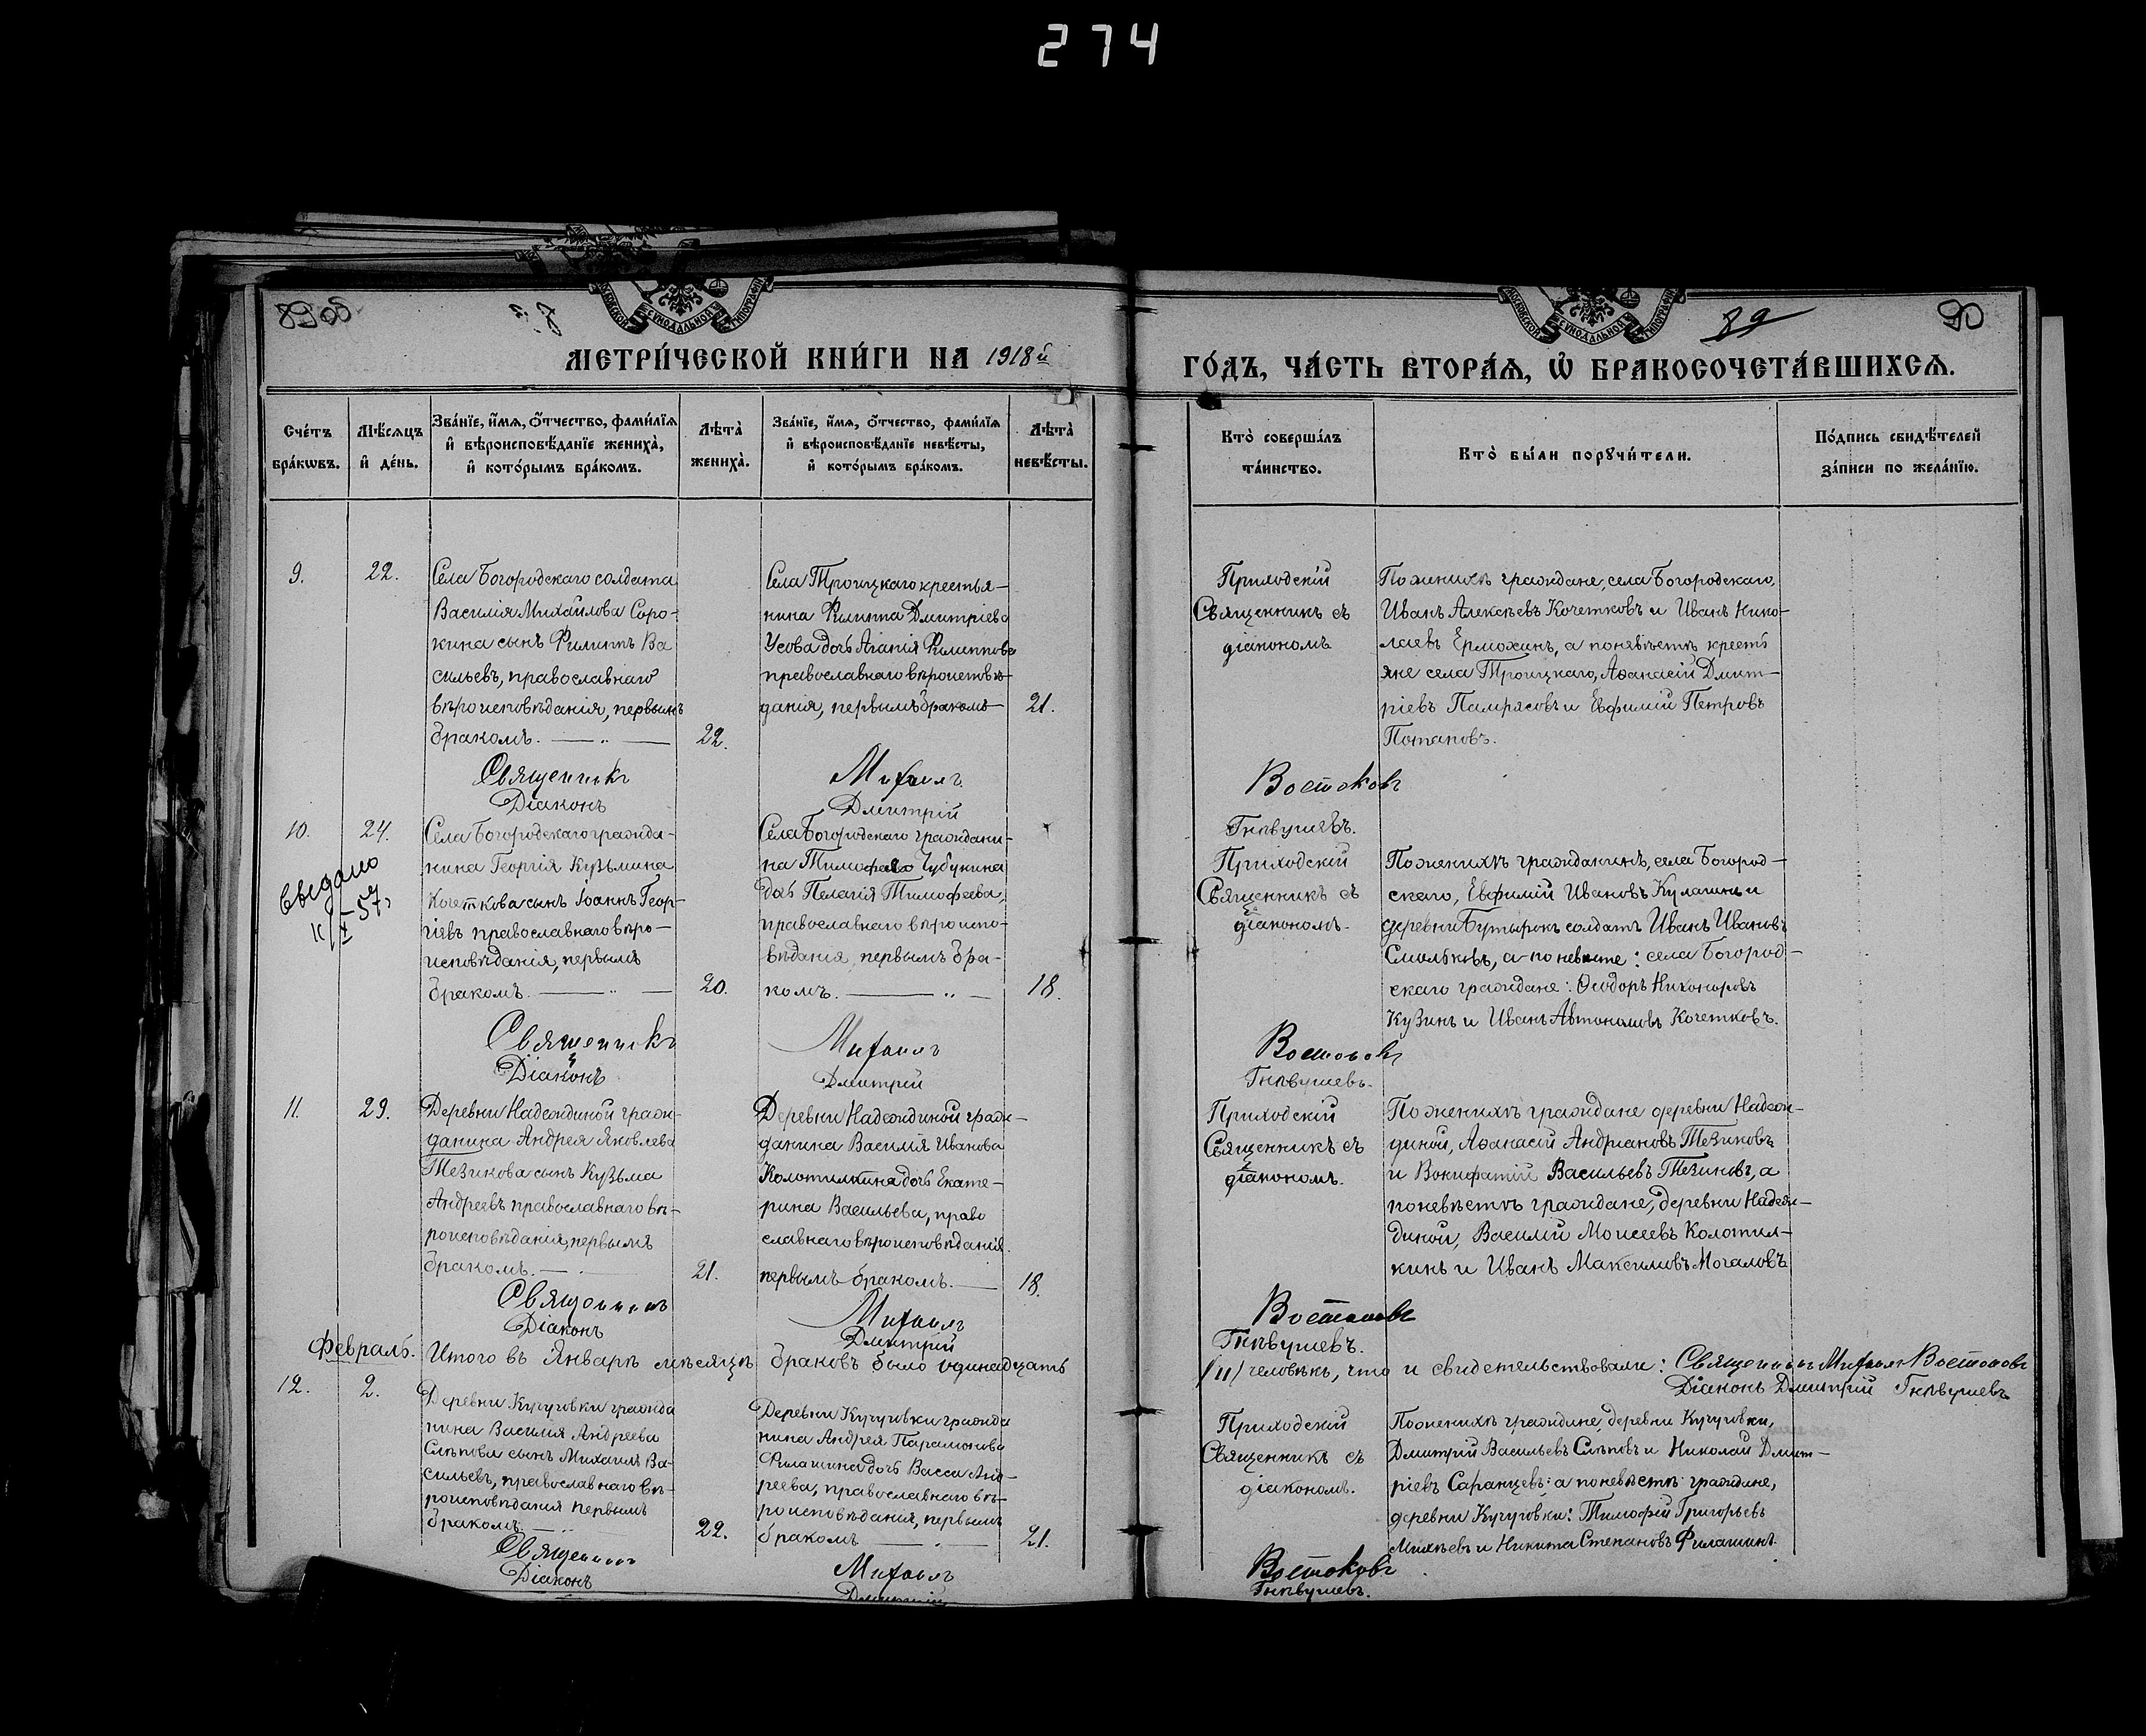 274
89
90
МЕТРИ́ЧЕСКОЙ КНИ́ГИ НА 1918й
ГО́ДЪ, ЧА́СТЬ ВТОРА́Ѧ, Ѡ҆ БРАКОСОЧЕТА́ВШИХСѦ.
Сче́тъ бра́кѡвъ.
Мѣ́сѧцъ и҆ де́нь.
Зва́нїе, и҆́мѧ, ѻ҆́тчество, фами́лїѧ и҆ вѣроисповѣ́данїе жениха̀, и҆ кото́рымъ бра́комъ.
Лѣта̀ жениха̀.
Зва́нїе, и҆́мѧ, ѻ҆́тчество, фами́лїѧ и҆ вѣроисповѣ́данїе невѣ́сты, и҆ кото́рымъ бра́комъ.
Лѣта̀ невѣ́сты.
Кто̀ соверша́лъ та́инство.
Кто̀ бы́ли порꙋчи́тели.
По́дпись свидѣ́телей за́писи по жела́нїю.
9.
22.
Села Богородскаго солдата
Василія Михайлова Соро-
кина сынъ Филиппъ Ва
сильевъ, православнаго
вѣроисповѣданія, первымъ
бракомъ.
22.
Села Троицкаго крестья-
нина Филиппа Дмитріева
Усова дочь Агапія Филиппова
православнаго вѣроисповѣ-
данія, первымъ бракомъ
21.
Приходскій
Священникъ съ
діакономъ
По женихѣ граждане, села Богородскаго,
Иванъ Алексѣевъ Кочетковъ и Иванъ Нико-
лаевъ Ермохинъ, а по невѣстѣ крестѣ
яне села Троицкаго, Аѳанасій Дмит-
ріевъ Памрясовъ и Евфимій Петровъ
Потаповъ.
Священникъ Михаилъ Востоковъ
Діаконъ Дмитрій Гнѣвушевъ.
10.
24.
Выдано
57
Села Богородскаго гражда-
нина Георгія Кузьмина
Кочеткова сынъ Іоаннъ Геор-
гіевъ православнаго вѣро-
исповѣданія, первымъ
бракомъ.
20.
Села Богородскаго граждани-
на Тимофея Чубукина
дочь Пелагія Тимофеева,
православнаго вѣроиспо-
вѣданія, первымъ бра-
комъ.
18.
Приходскій
Священникъ съ
діакономъ.
По женихѣ гражданинъ, села Богород-
скаго, Евфимій Ивановъ Кулагинъ и
деревни Бутырокъ солдатъ Иванъ Ивановъ
Смольковъ, а по невѣсте: села Богород-
скаго граждане: Ѳеодоръ Никоноровъ
Кузинъ и Иванъ Автономовъ Кочетковъ.
Священникъ Михаилъ Востоковъ
Діаконъ Дмитрій Гнѣвушевъ.
11.
29.
Деревни Надеждиной граж-
данина Андрея Яковлева
Тезикова сынъ Кузьма
Андреевъ православнаго вѣ-
роисповѣданія, первымъ
бракомъ.
21.
Деревни Надеждиной граж-
данина Василія Иванова
Колотилкина дочь Екате-
рина Васильева, право
славнаго вѣроисповѣданія.
первымъ бракомъ.
18.
Приходскій
Священникъ съ
діакономъ.
По женихѣ граждане деревни Надеж-
диной, Аѳанасій Андріановъ Тезиковъ
и Вонифатій Васильевъ Тезиковъ, а
по невѣстѣ граждане, деревни Надеж-
диной, Василій Моисеевъ Колотил-
кинъ и Иванъ Максимовъ Могаловъ
Священникъ Михаилъ Востоковъ
Діаконъ Дмитрій Гнѣвушевъ.
Февраль.
Итого въ Январѣ мѣсяцѣ браковъ было одинадцать /11/ человѣкъ, что и свидетельствовали: Священникъ Михаилъ Востоковъ
Діаконъ Дмитрій Гнѣвушевъ
12.
2.
Деревни Кучуговки гражда
нина Василія Андреева
Слѣпова сынъ Михаилъ Ва-
сильевъ, православнаго вѣ-
роисповѣданія первымъ
бракомъ.
22.
Деревни Кучуговки гражда
нина Андрея Парамонова
Филашина дочь Васса Анд-
реева, православнаго вѣ-
роисповѣданія, первымъ
бракомъ
21.
Приходскій
Священникъ съ
діакономъ.
По женихѣ граждане, деревни Кучуговки,
Дмитрій Васильевъ Слѣповъ и Николай Дмит-
ріевъ Саранцевъ: а по невѣстѣ: граждане,
деревни Кучуговки: Тимофей Григорьевъ
Михѣевъ и Никита Степановъ Филашинъ.
Священникъ Михаилъ Востоковъ
Діаконъ Дмитрій Гнѣвушевъ.